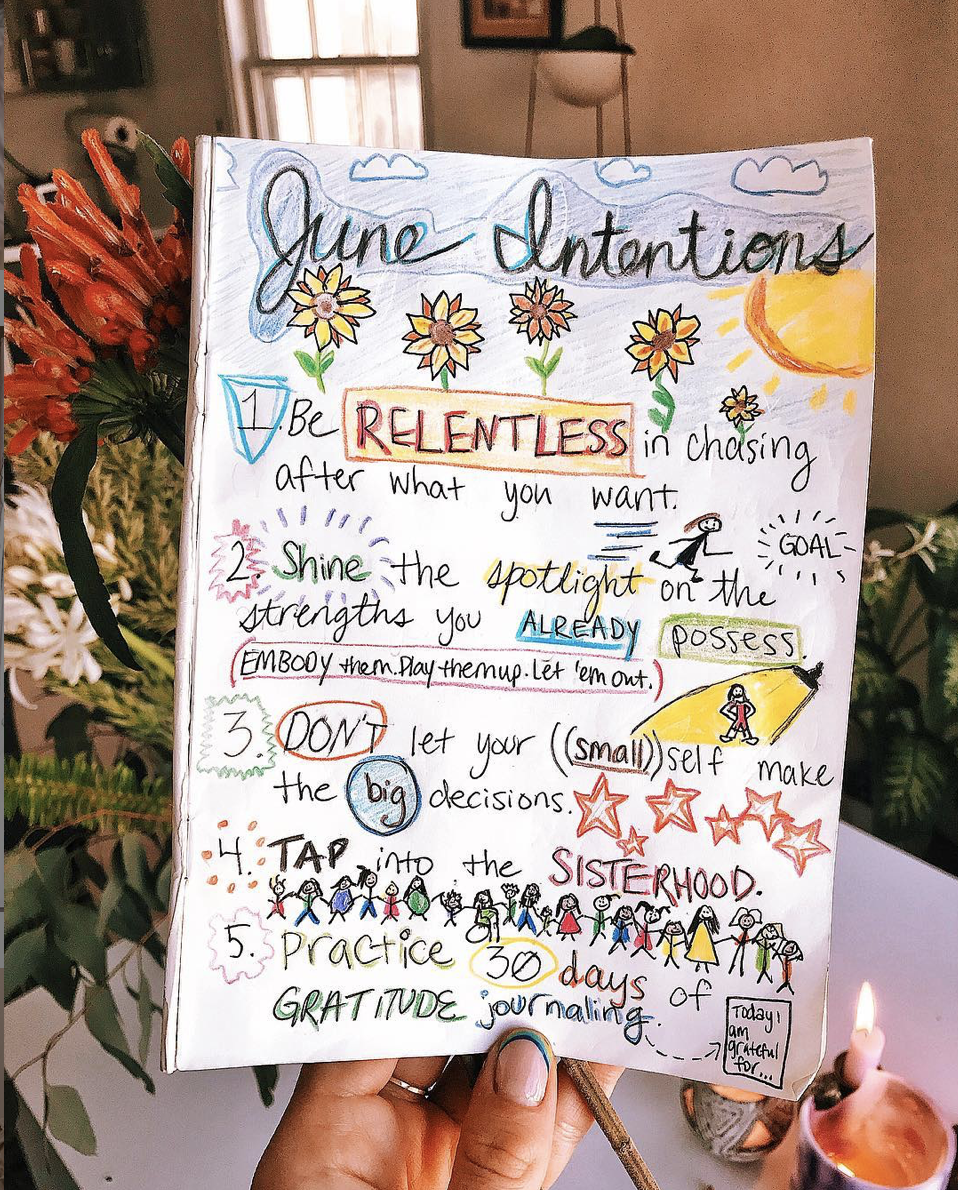 June Intentions
1. Be RELENTLESS in chasing
after what you want.
GOAL
2. Shine the spotlight on the
strengths you ALREADY possess.
(EMBODY them. Play them up. Let 'em out.)
3. DON'T let your ((small)) self make
the big decisions.
4. TAP into the SISTERHOOD.
5. Practice 30 days of
GRATITUDE journaling.
Today I
am
grateful
for...